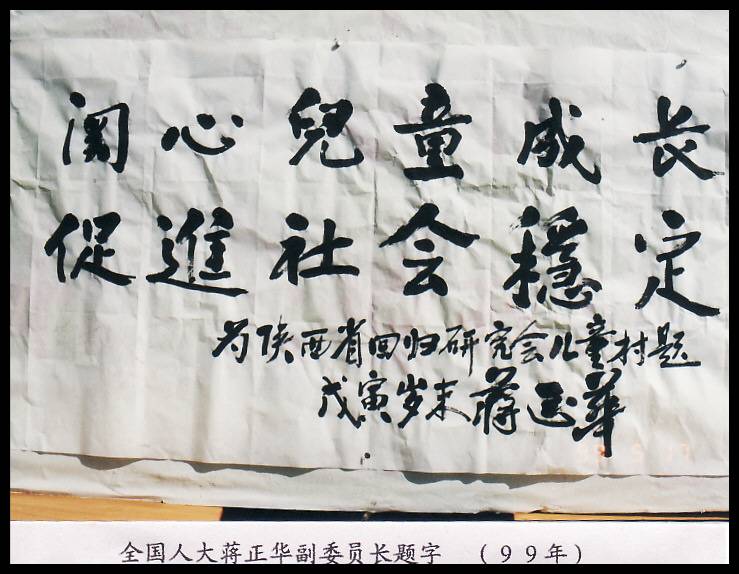 関心兒童成长
促進社会穩定
为陕西省回归研究会儿童村题
戊寅岁末 蒋正华
全国人大蒋正华副委员长题字 （９９年）